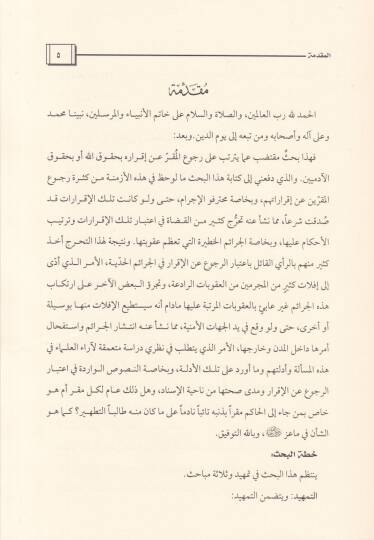 المقدمة
٥
مُقَدِّمَة
الحمد لله رب العالمين، والصلاة والسلام على خاتم الأنبياء والمرسلين، نبينا محمد
وعلى آله وأصحابه ومن تبعه إلى يوم الدين.وبعد:
فهذا بحثٌ مقتضب عما يترتب على رجوع المُقرّ عن إقراره بحقوق الله أو بحقوق
الآدميين. والذي دفعني إلى كتابة هذا البحث ما لوحظ في هذه الأزمنة من كثرة رجوع
المقرّين عن إقراراتهم، وبخاصة محترفو الإجرام، حتى ولو كانت تلك الإقرارات قد
صُدقت شرعاً، مما نشأ عنه تحرُّج كثير من القضاة في اعتبار تلك الإقرارات وترتيب
الأحكام عليها، وبخاصة الجرائم الخطيرة التي تعظم عقوبتها. ونتيجة لهذا التحرج أخذ
كثير منهم بالرأي القائل باعتبار الرجوع عن الإقرار في الجرائم الحدّية، الأمر الذي أدّى
إلى إفلات كثير من المجرمين من العقوبات الرادعة، وتجرؤ البعض الآخر على ارتكاب
هذه الجرائم غير عابئ بالعقوبات المرتبة عليها مادام أنه سيستطيع الإفلات منها بوسيلة
أو أخرى، حتى ولو وقع في يد الجهات الأمنية، مما نشأ عنه انتشار الجرائم واستفحال
أمرها داخل المدن وخارجها، الأمر الذي يتطلب في نظري دراسة متعمقة لآراء العلماء في
هذه المسألة وأدلتهم وما أورد على تلك الأدلة، وبخاصة النصوص الواردة في اعتبار
الرجوع عن الإقرار ومدى صحتها من ناحية الإسناد، وهل ذلك عام لكل مقر أم هو
خاص بمن جاء إلى الحاكم مقراً بذنبه تائباً نادماً على ما كان منه طالباً التطهير؟ كما هو
الشأن في ماعز ﷺ، وبالله التوفيق.
خطة البحث:
ينتظم هذا البحث في تمهيد وثلاثة مباحث.
التمهيد: ويتضمن التمهيد: